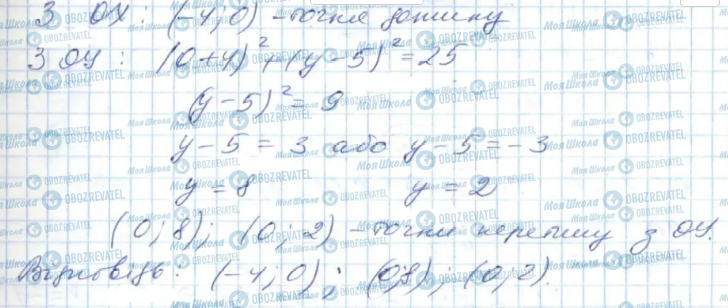 З OX : (-4; 0) - точка дотику
З OY : (0+4)² + (y-5)² = 25
(y-5)² = 9
y-5 = 3 або y-5 = -3
y = 8 y = 2
(0; 8); (0; 2) - точки перетину з OY.
Відповідь: (-4; 0); (0; 8); (0; 2).